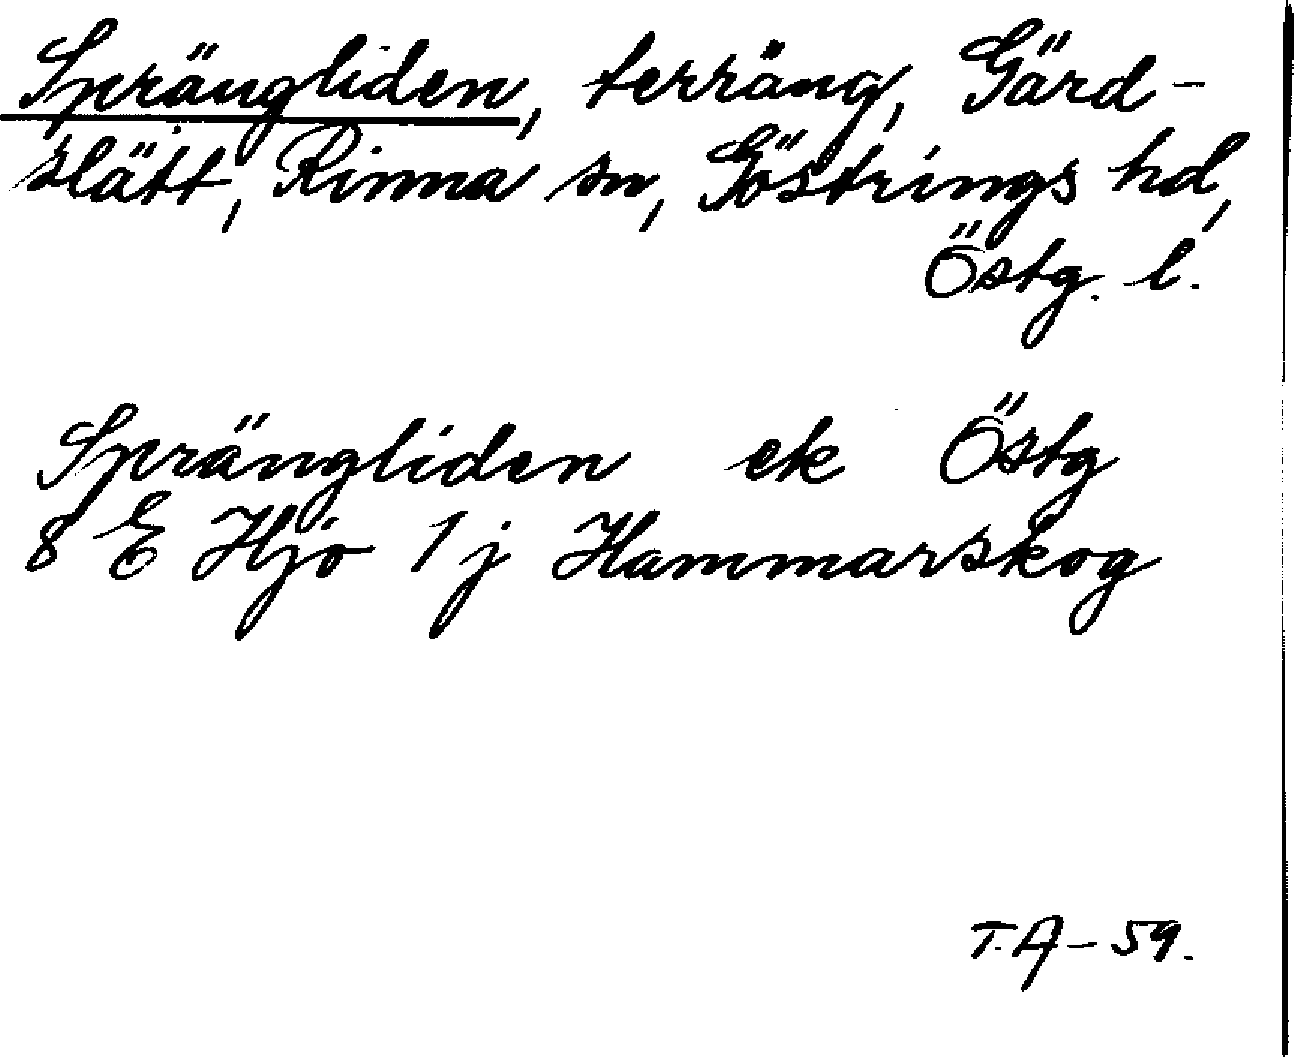 Sprängliden, terräng, Gärd-
slätt, Rinna sn, Göstrings hd,
Östg. l.
Sprängliden ek Östg
8 E Hjo 1j Hammarskog
T.A-59.